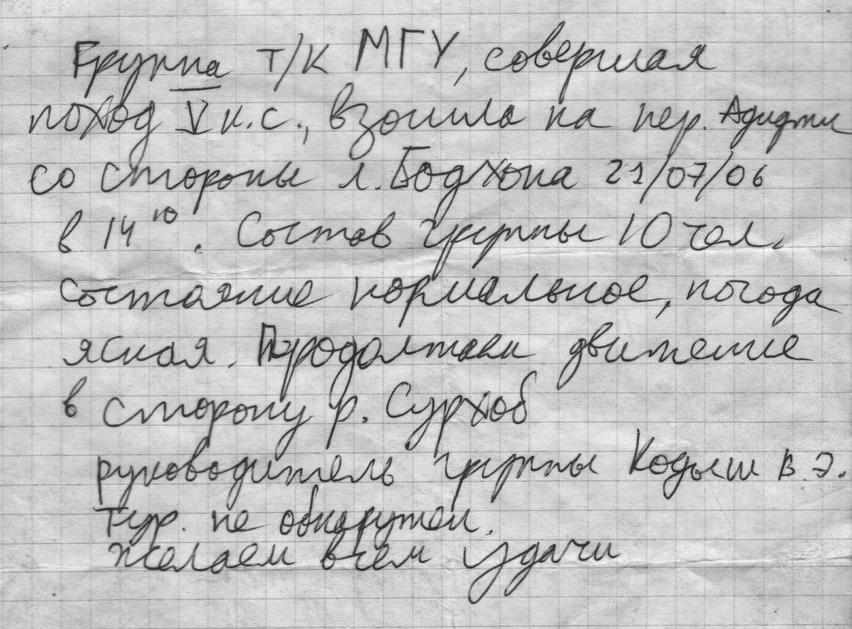 Группа т/к МГУ, совершая
поход V к.с., взошла на пер.
со стороны л. Бодхона 21/07/06
в 14 10. Состав группы 10 чел.
Состояние нормальное, погода
ясная. Продолжаем движение
в сторону р. Сурхоб
руководитель группы Кодыш В.Э.
Тур. не обнаружен.
Желаем всем удачи